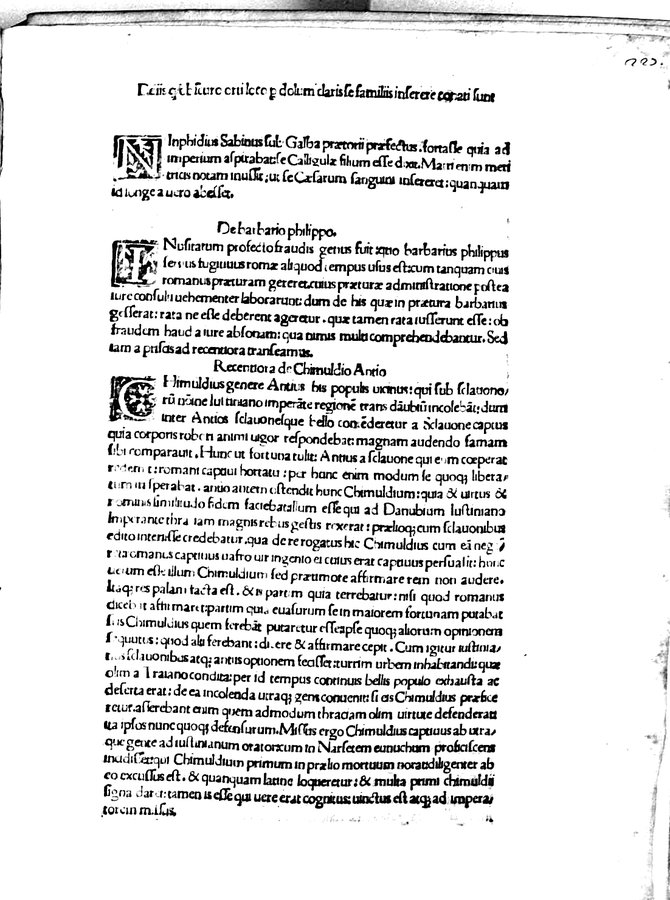 222.
infimo loco per dolum clarisse familiis inserere conati sunt
NInphidius Sabinus sub Galba prætorii præfectus: fortasse quia ad
imperium aspirabat: se Calligulæ filium esse dixit. Matri enim meri
tricis notam inussit: ut se Cæsarum sanguini insereret: quanquam
id longe a uero abesset.
De barbario philippo.
INusitatum profecto fraudis genus fuit: quo barbarius philippus
seruus fugitiuus romæ aliquod tempus usus est: cum tanquam ciuis
romanus præturam gereret. cuius præturæ administratione postea
iure consulti uehementer laborarunt: dum de his quæ in prætura barbarius
gesserat: rata ne esse deberent ageretur. quæ tamen rata iusserunt esse: ob
fraudem haud a iure absonam: qua nimis multi comprehendebantur. Sed
iam a priscis ad recentiora transeamus.
Recentiora de Chimuldio Antio
CHimuldius genere Antius his populis uicinus: qui sub sclauono/
rū noīe Iustiniano imperāte regionē trans dāubiū incolebāt: dum
inter Antios sclauonesque bello contēderetur a Sclauone captus
quia corporis robori animi uigor respondebat: magnam audendo famam
sibi comparauit. Hunc ut fortuna tulit: Antius a sclauone qui eum cœperat
redemit: romani captiui hortatu: per hunc enim modum se quoq; libera/
tum iri sperabat. antio autem ostendit hunc Chimuldium: quia & uirtus &
nominis similitudo fidem faciebat alium esse qui ad Danubium Iustiniano
Imperante thraciam magnis rebus gestis rexerat: prælioq; cum sclauonibus
edito interisse credebatur. qua de re rogatus hic Chimuldius cum eā neg
romanus captiuus uafro uir ingenio ei cuius erat captiuus persuasit: hunc
uerum esse illum Chimuldium sed præ timore affirmare rem non audere.
Itaq; res palam facta est. & is partim quia terrebatur: nisi quod romanus
dicebat affirmaret: partim quia euasurum se in maiorem fortunam putabat
si is Chimuldius quem ferebāt putaretur esse: ipse quoq; aliorum opinionem
sequutus: quod alii ferebant: dicere & affirmare cepit. Cum igitur iustinia/
nus sclauonibus atq; antiis optionem fecisset: turrim urbem inhabitandi: quæ
olim a Traiano condita: per id tempus continuis bellis populo exhausta ac
deserta erat: de ea incolenda utraq; gens conuenit: si eis Chimuldius præfice
retur. asserebant enim quem admodum thraciam olim uirtute defenderat:
ita ipsos nunc quoq; defensurum. Missus ergo Chimuldius captiuus ab utra/
que gente ad iustinianum oratorem in Narsetem eunuchum proficiscens
incidisset: qui Chimuldium primum in prælio mortuum norat: diligenter ab
eo excussus est. & quanquam latine loqueretur: & multa primi chimuldii
signa daret: tamen is esse qui uere erat cognitus: uinctus est atq; ad impera/
torem missus.